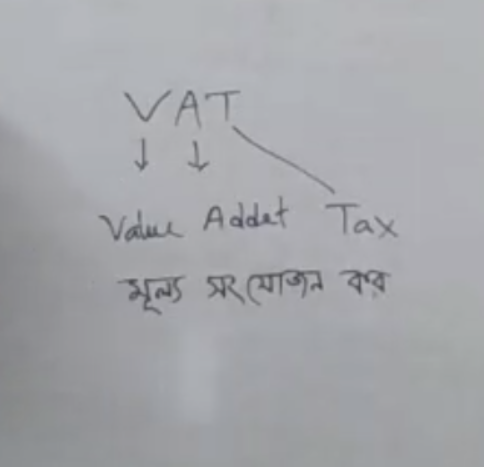 VAT
Value Addet Tax
মূল্য সংযোজন কর